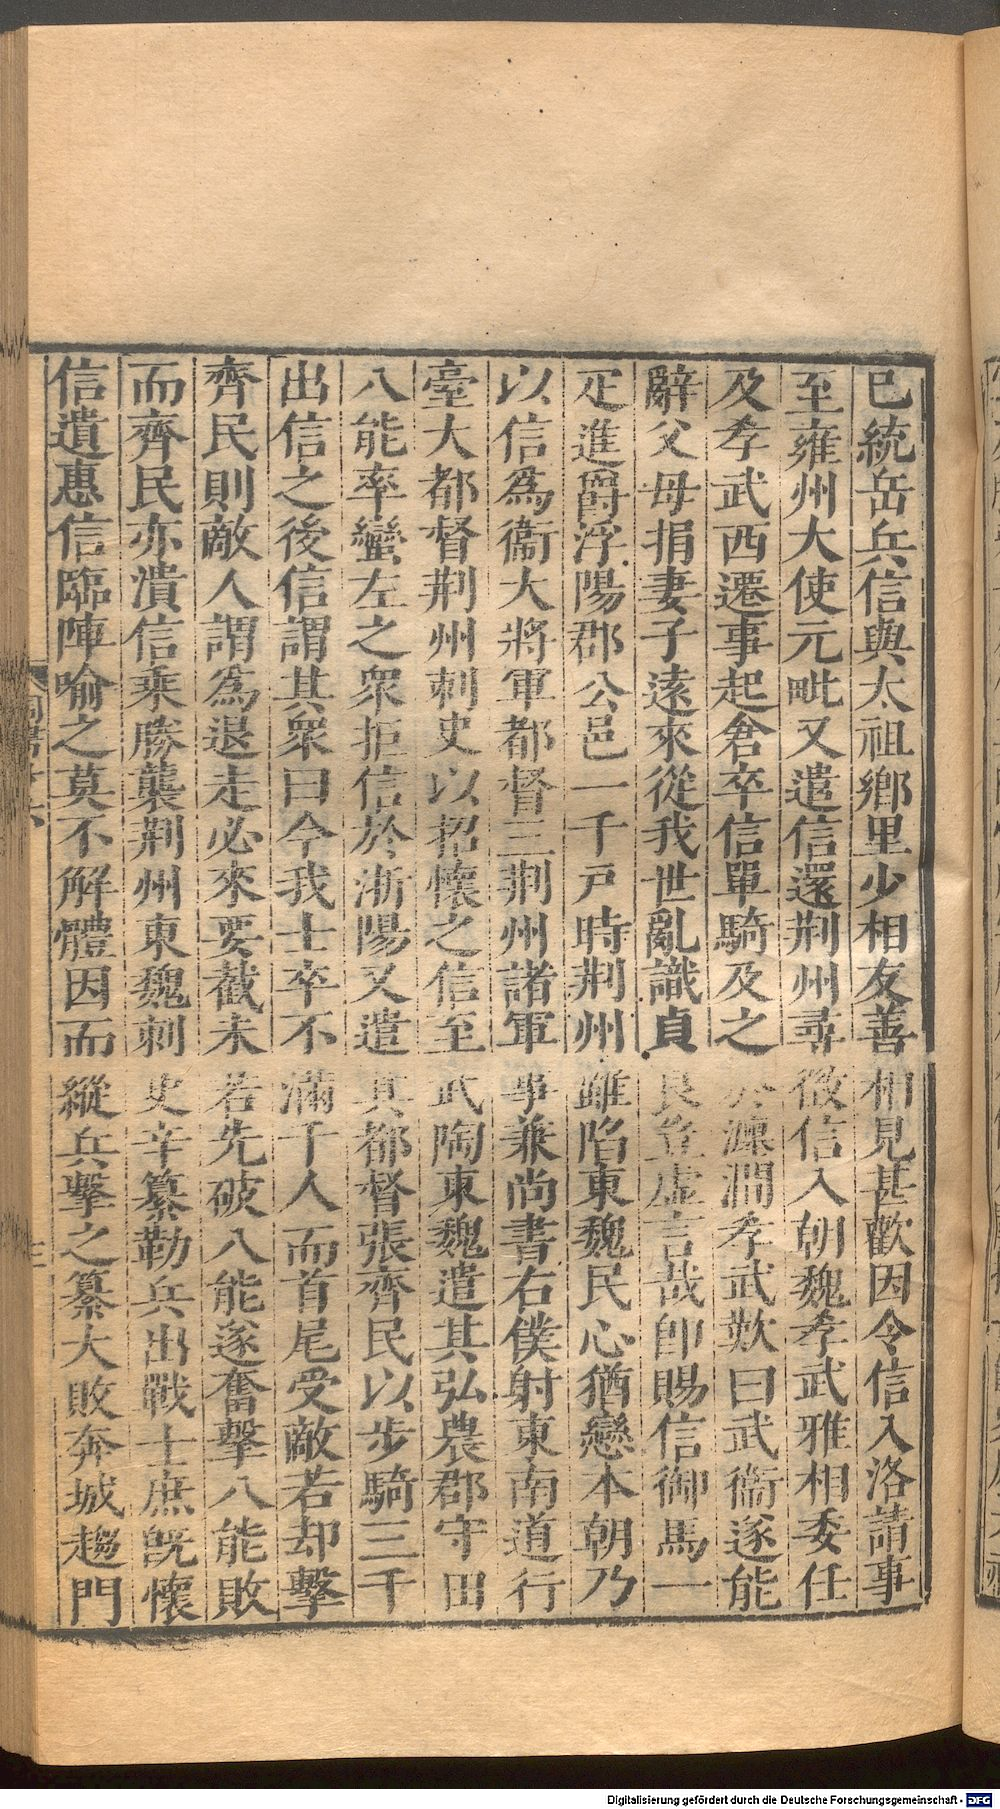 已統岳兵信與太祖鄉里少相友善相見甚歡因令信入洛請事
至雍州大使元毗又遣信還荆州尋徵信入朝魏孝武雅相委任
及孝武西遷事起倉卒信單騎及之於瀍澗孝武歎曰武衞遂能
辭父母捐妻子遠來從我世亂識貞良豈虛言哉即賜信御馬一
疋進爵浮陽郡公邑一千戸時荆州雖陷東魏民心猶戀本朝乃
以信爲衞大將軍都督三荆州諸軍事兼尚書右僕射東南道行
臺大都督荆州刺史以招懷之信至武陶東魏遣其弘農郡守田
八能率蠻左之衆拒信於淅陽又遣其都督張齊民以步騎三千
出信之後信謂其衆曰今我士卒不滿千人而首尾受敵若却擊
齊民則敵人謂爲退走必來要截未若先破八能遂奮擊八能敗
而齊民亦潰信乘勝襲荆州東魏刺史辛纂勒兵出戰士庶旣懷
信遺惠信臨陣喻之莫不解體因而縱兵擊之纂大敗奔城趨門
Digitalisierung gefördert durch die Deutsche Forschungsgemeinschaft - DFG